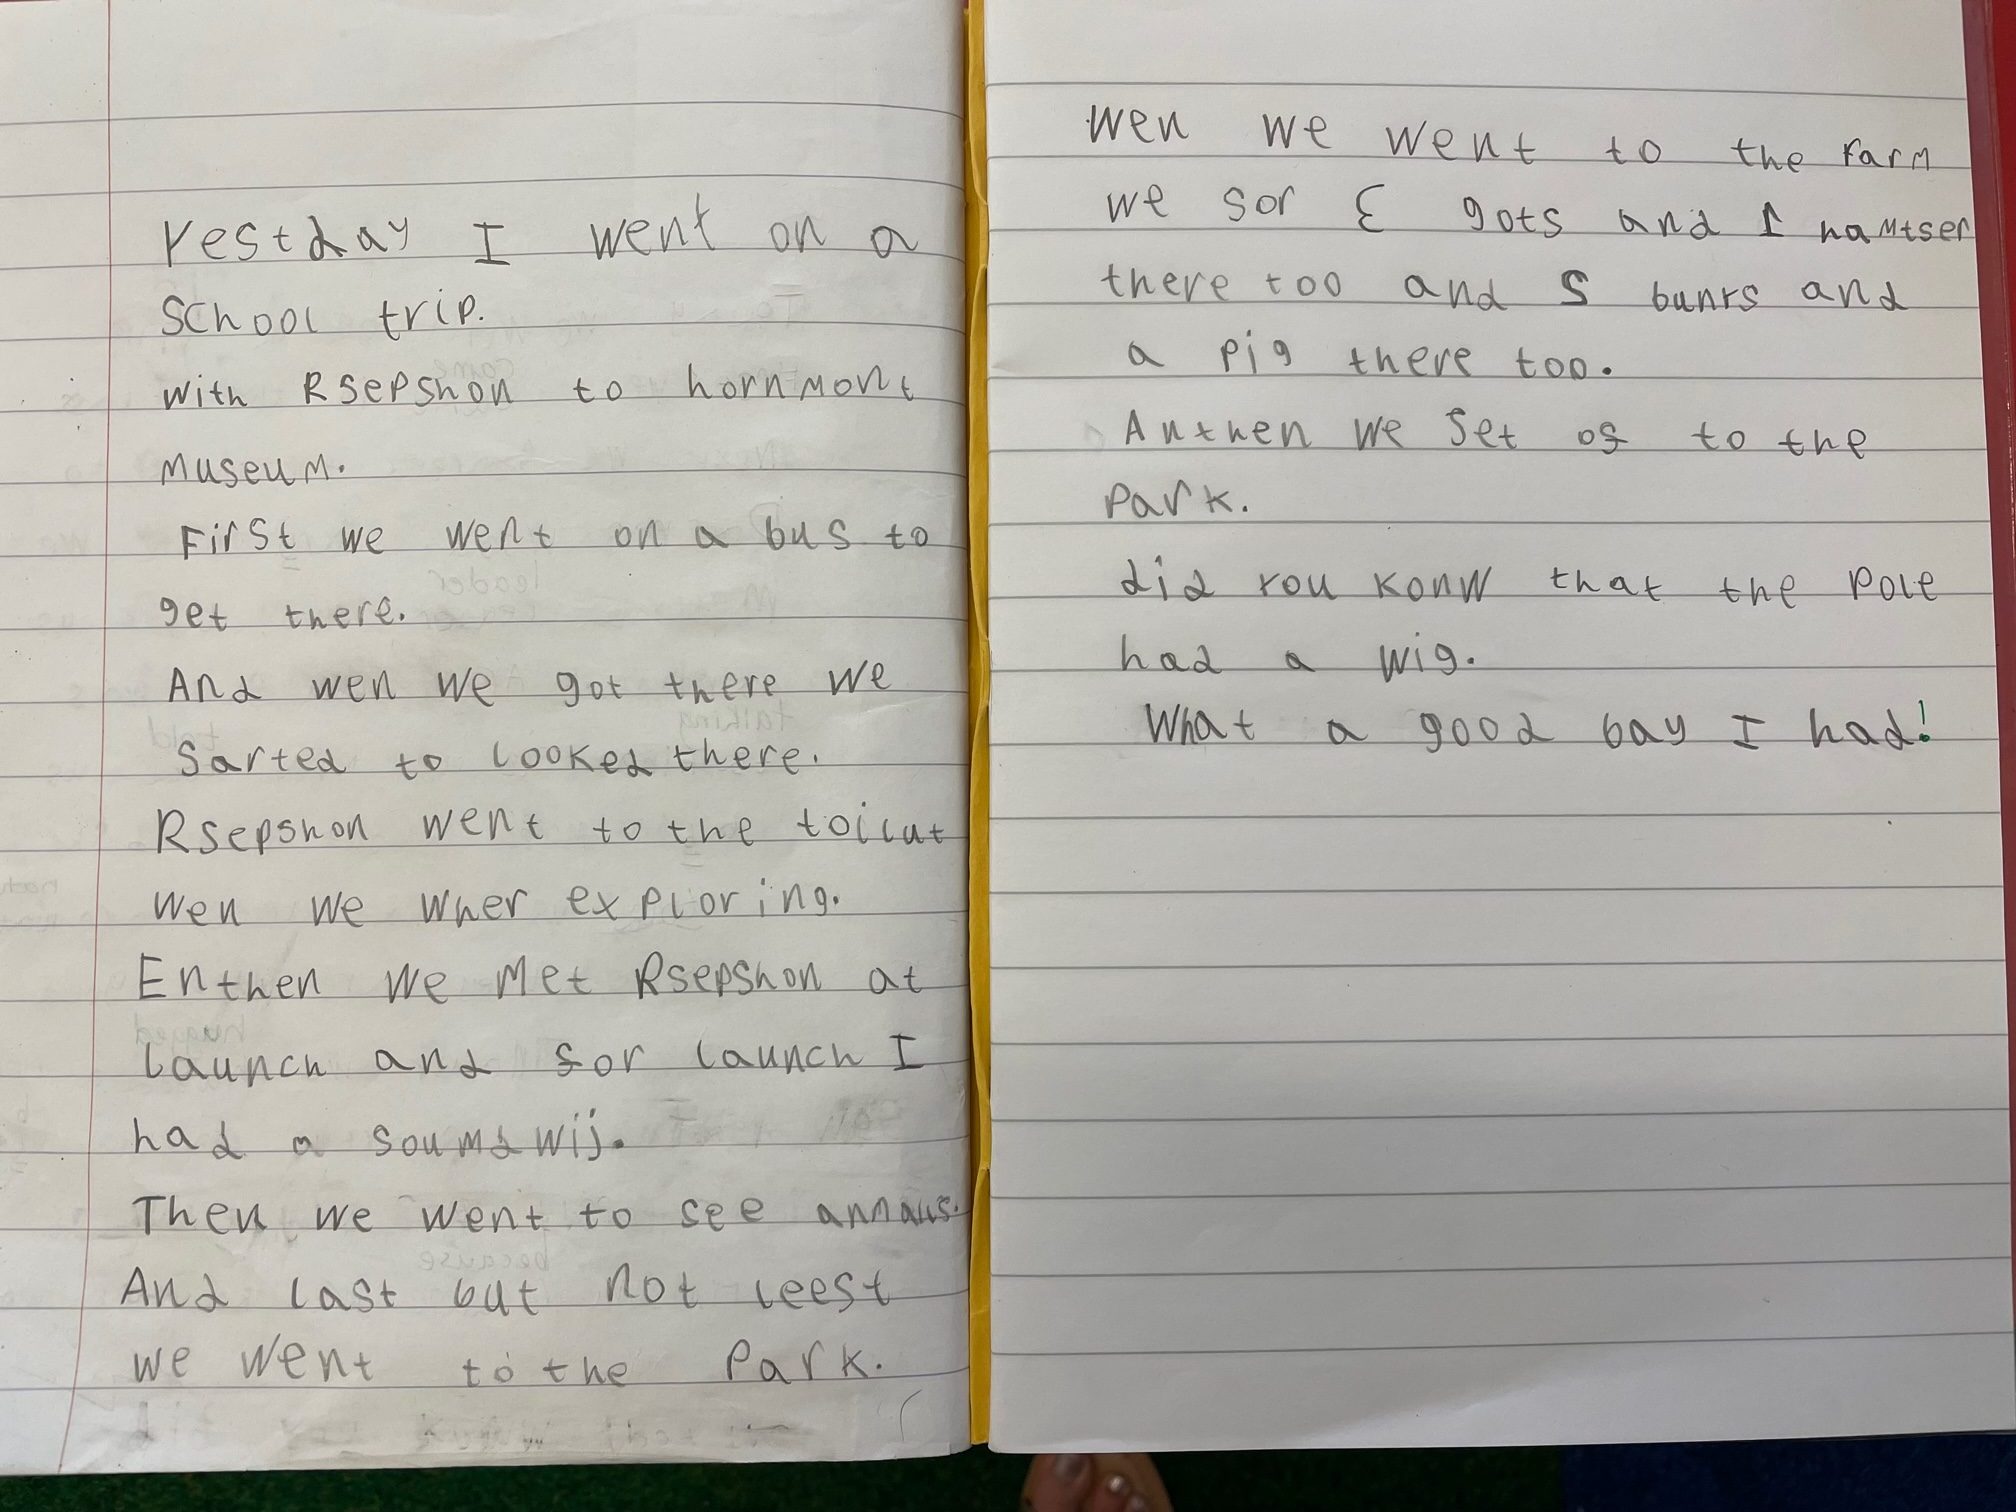 Yestday I went on a
School trip.
with Rsepshon to hornmont
museum.
First we went on a bus to
get there.
And wen we got there we
Sarted to looked there.
Rsepshon went to the toilut
wen we wher exploring.
Enthen we met Rsepshon at
launch and for launch I
had a soumdwij.
Then we went to see anmals.
And last but not leest
we went to the Park.
wen we went to the farm
we sor 3 gots and 1 hamtser
there too and 5 bunys and
a pig there too.
Anthen we set of to the
park.
did you konw that the pole
had a wig.
What a good bay I had!